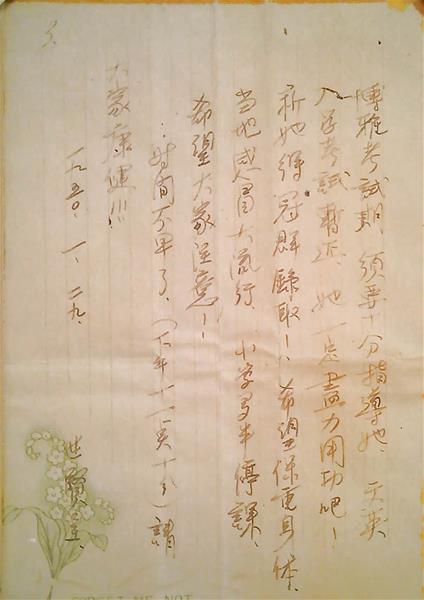 3.
博雅考試期、須要十分指導她、天英
入学考試暫近、她一定盡力用功吧！
祈她得冠群錄取！希望保重身体、
当地感冒大流行、小学多半停課、
希望大家注意！
时间不早了、(下午十一点十分)請
大家康健!!!
一九五〇、一、二九、
世賢 上
FORGET ME NOT